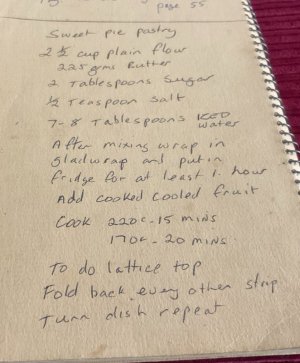 page 55
Sweet Pie Pastry
2 ½ cup plain flour
225 grms Butter
2 Tablespoons Sugar
½ Teaspoon Salt
7-8 Tablespoons ICED
water
After mixing wrap in
gladwrap and put in
fridge for at least 1 hour
Add cooked cooled fruit
Cook 220c - 15 mins
170c - 20 mins
To do lattice top
Fold back every other strip
Turn dish repeat